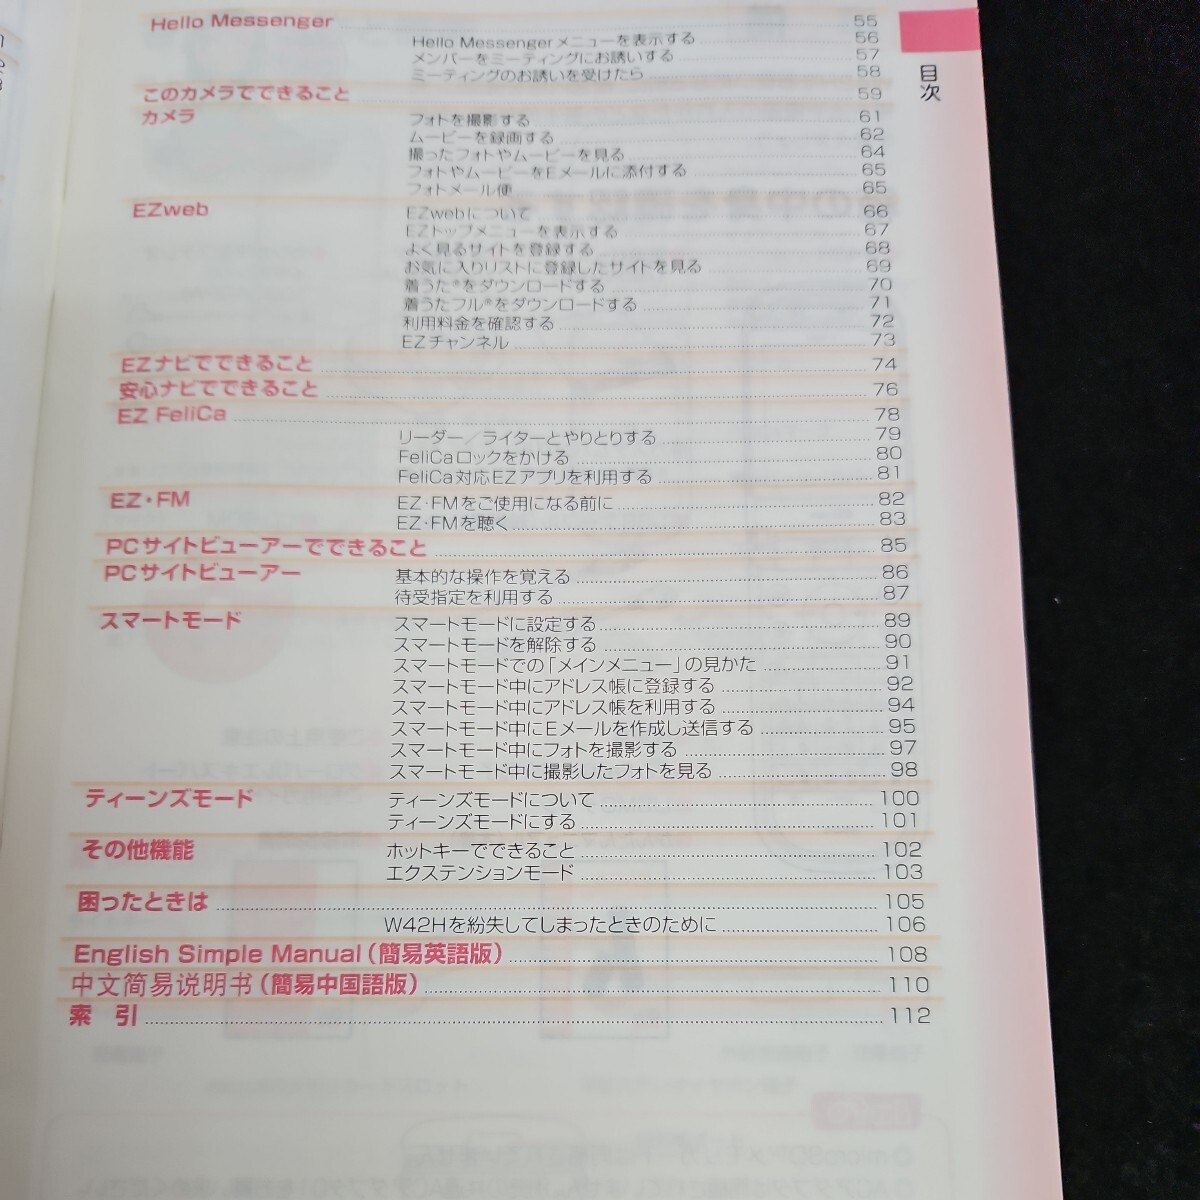 Hello Messenger 55
Hello Messengerメニューを表示する 56
メンバーをミーティングにお誘いする 57
ミーティングのお誘いを受けたら 58
このカメラでできること 59
カメラ フォトを撮影する 61
ムービーを録画する 62
撮ったフォトやムービーを見る 64
フォトやムービーをEメールに添付する 65
フォトメール便 65
EZweb EZwebについて 66
EZトップメニューを表示する 67
よく見るサイトを登録する 68
お気に入りリストに登録したサイトを見る 69
着うた®をダウンロードする 70
着うたフル®をダウンロードする 71
利用料金を確認する 72
EZチャンネル 73
EZナビでできること 74
安心ナビでできること 76
EZ FeliCa 78
リーダー／ライターとやりとりする 79
FeliCaロックをかける 80
FeliCa対応EZアプリを利用する 81
EZ・FM EZ・FMをご使用になる前に 82
EZ・FMを聴く 83
PCサイトビューアーでできること 85
PCサイトビューアー 基本的な操作を覚える 86
待受指定を利用する 87
スマートモード スマートモードに設定する 89
スマートモードを解除する 90
スマートモードでの「メインメニュー」の見かた 91
スマートモード中にアドレス帳に登録する 92
スマートモード中にアドレス帳を利用する 94
スマートモード中にEメールを作成し送信する 95
スマートモード中にフォトを撮影する 97
スマートモード中に撮影したフォトを見る 98
ティーンズモード ティーンズモードについて 100
ティーンズモードにする 101
その他機能 ホットキーでできること 102
エクステンションモード 103
困ったときは 105
W42Hを紛失してしまったときのために 106
English Simple Manual（簡易英語版） 108
中文简易说明书（簡易中国語版） 110
索　引 112
目次